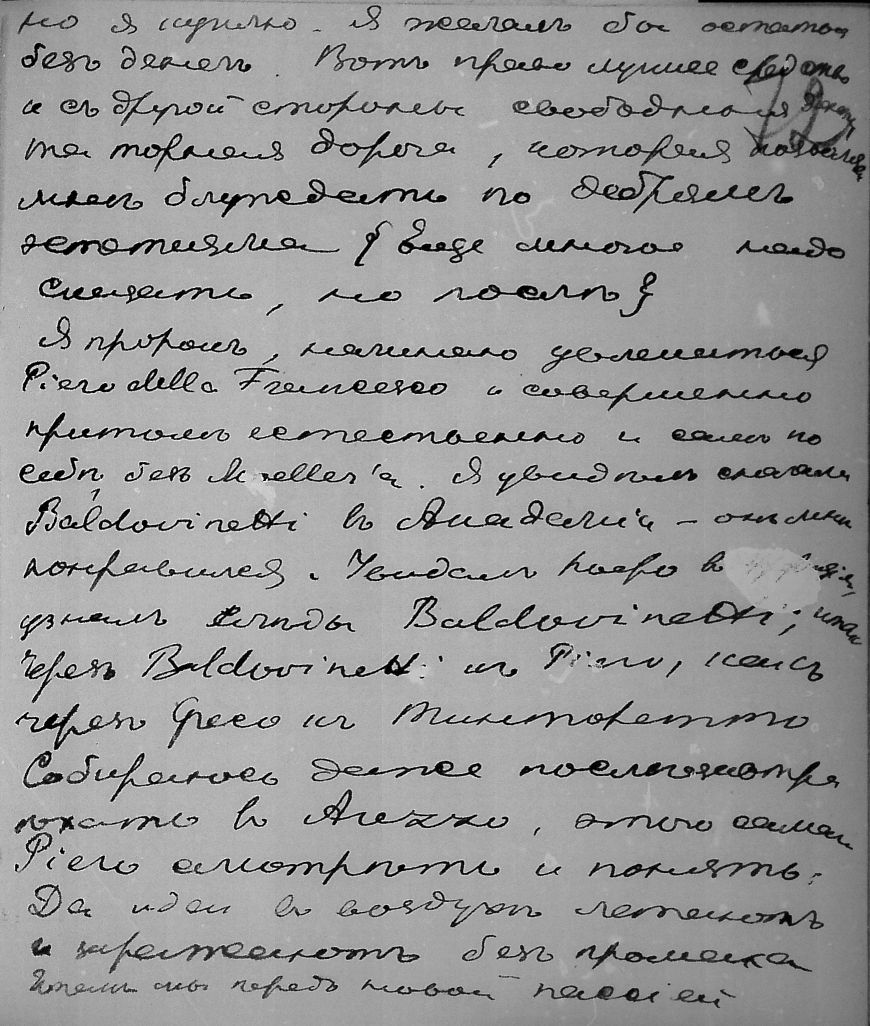 но я скучно. Я желалъ бы остаться
безъ денегъ. Вотъ право лучшее средство
и съ другой стороны свободная
та торная дорога, которая
мнѣ блуждать по дебрямъ
эготизма {Еще многое надо
сказать, но послѣ}
Я пророкъ, начинаю увлекаться
Piero della Francesco и совершенно
притомъ естественно и самъ по
себѣ, безъ Mueller'а. Я увидѣлъ сначала
Baldovinetti въ Академіи – онъ мнѣ
понравился. Увидалъ Piero въ
узналъ слѣды Baldovinetti; итакъ
черезъ Baldovinetti къ Piero, какъ
черезъ Греко къ Тинторетто
Собираюсь даже послѣзавтра
ѣхать въ Arezzo, этого самаго
Piero смотрѣть и понять.
Да идеи въ воздухѣ летаютъ
и заражаютъ безъ промаха
Итакъ мы передъ новой пассіей